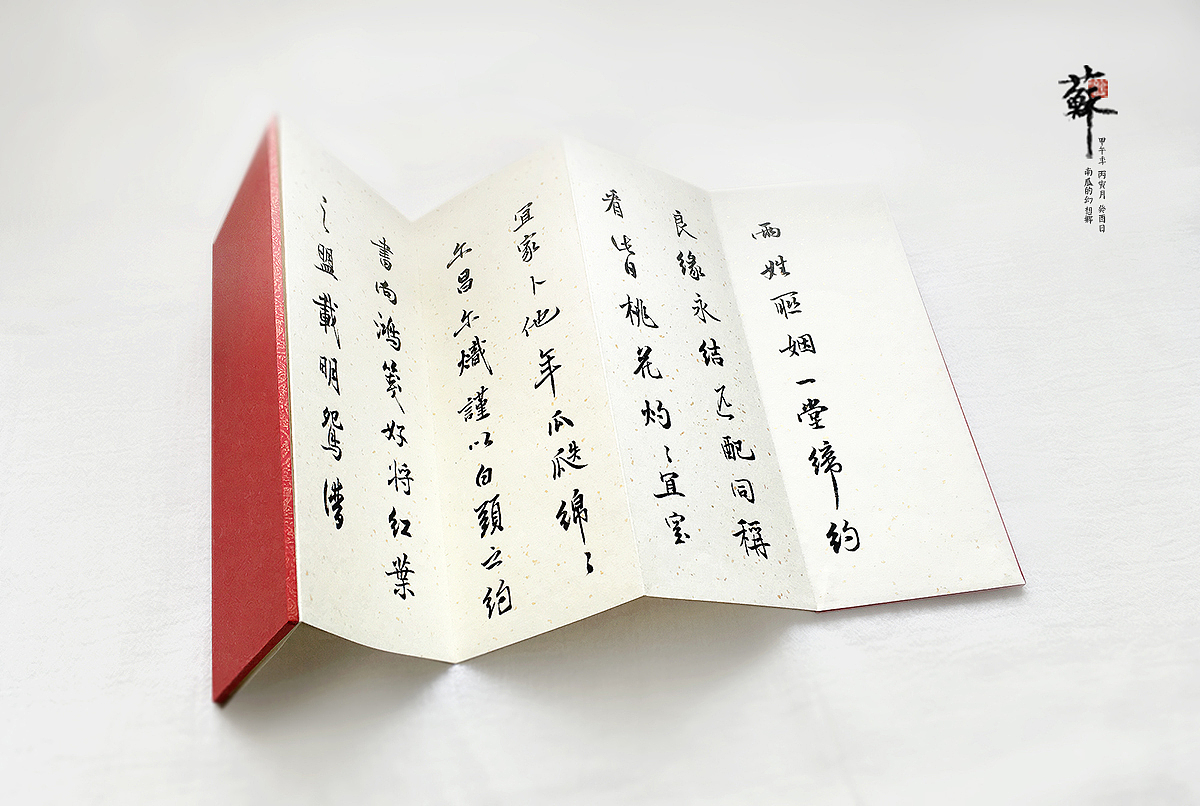 兩姓聯姻一堂締約
良緣永結匹配同稱
看此日桃花灼〻宜室
宜家卜他年瓜瓞綿〻
尔昌尔熾謹以白頭之約
書向鴻箋好将紅葉
之盟載明鴛譜
蘇
甲午年 丙寅月 癸酉日
南瓜的幻想鄉